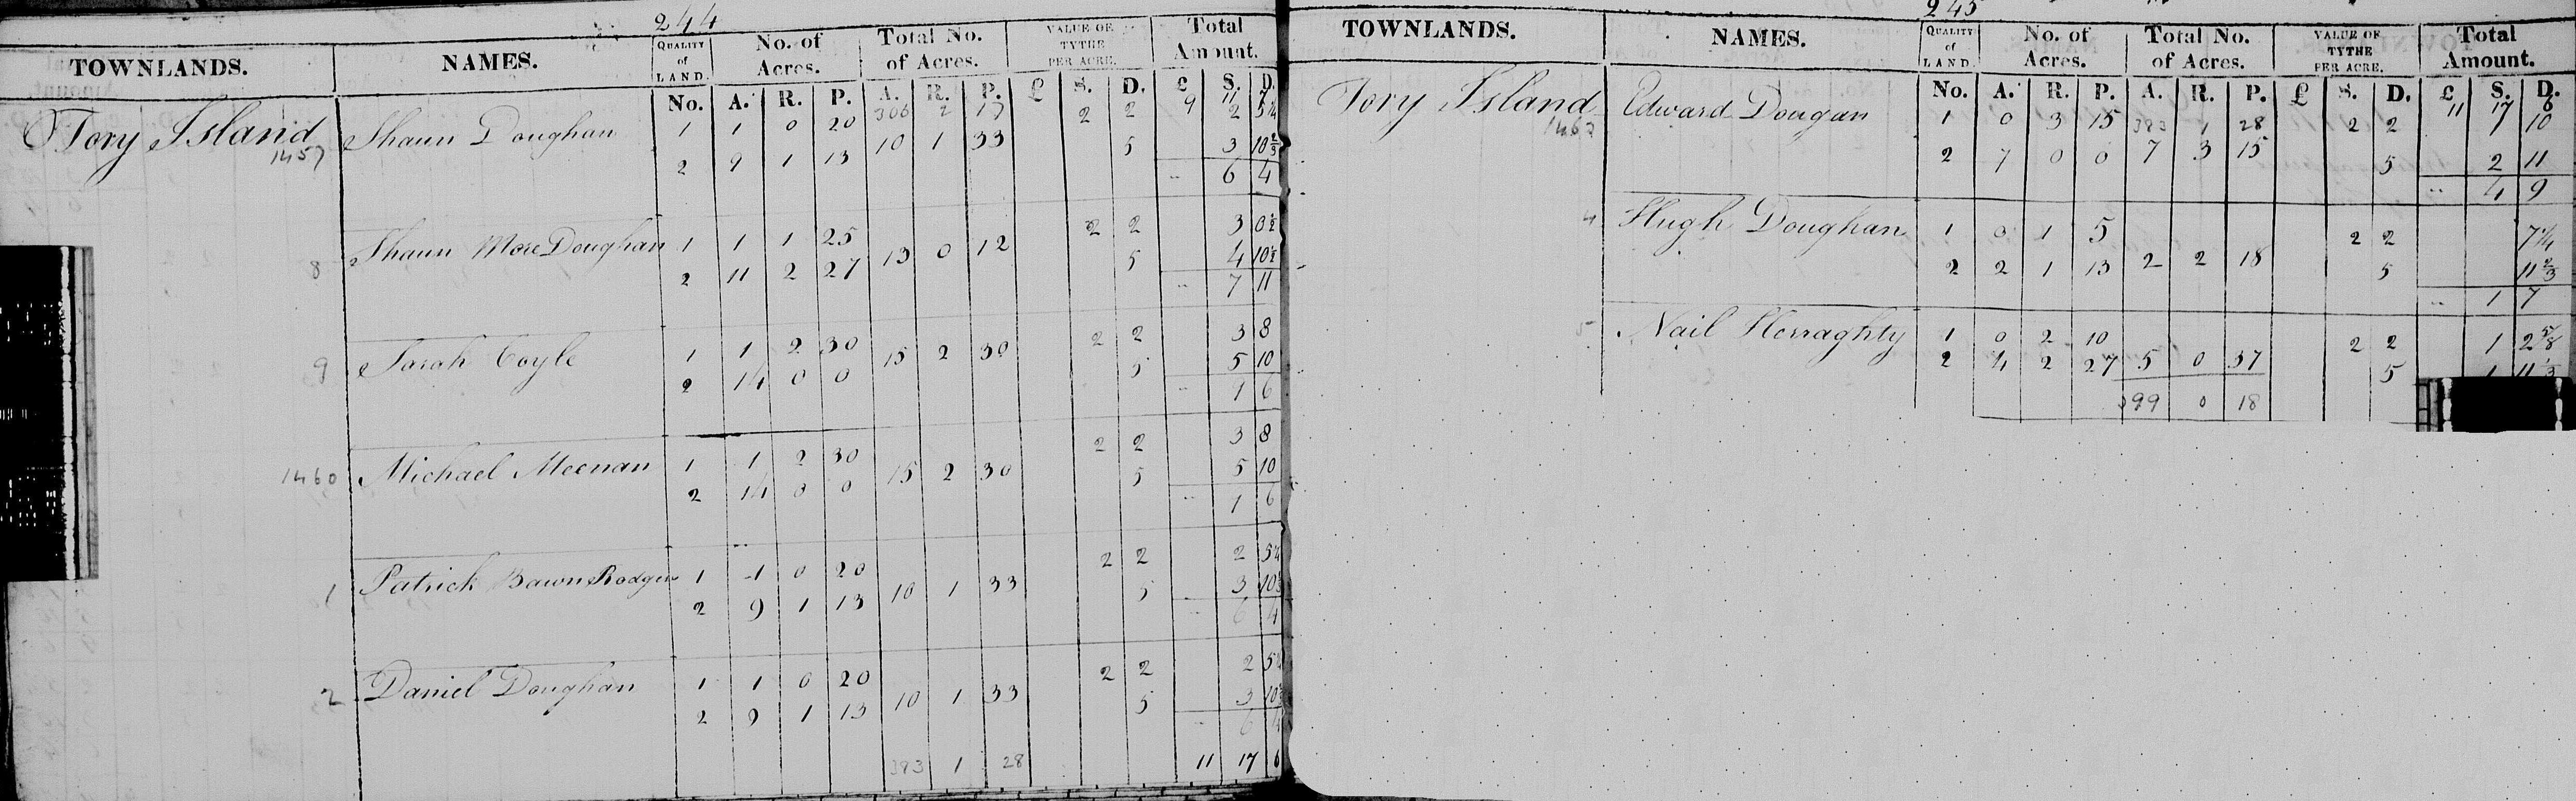 244
TOWNLANDS. NAMES. QUALITY of LAND. No. of Acres. Total No. of Acres. VALUE OF TYTHE PER ACRE. Total Amount.
No. A. R. P. A. R. P. £ S. D. £ S. D.
306 2 17 9 11 7
Tory Island 1457 Shaun Doughan 1 1 0 20 2 2 2 5¼
10 1 33
2 9 1 13 5 3 10⅔
" 6 4
8 Shaun More Doughan 1 1 1 25 2 2 3 0½
13 0 12
2 11 2 27 5 4 10½
" 7 11
9 Sarah Coyle 1 1 2 30 2 2 3 8
15 2 30
2 14 0 0 5 5 10
" 1 6
1460 Michael Meenan 1 1 2 30 2 2 3 8
15 2 30
2 14 0 0 5 5 10
" 1 6
1 Patrick Bawn Rodgers 1 1 0 20 2 2 2 5¼
10 1 33
2 9 1 13 5 3 10⅔
" 6 4
2 Daniel Doughan 1 1 0 20 2 2 2 5¼
10 1 33
2 9 1 13 5 3 10⅔
" 6 4
383 1 28 11 17 6
245
TOWNLANDS. NAMES. QUALITY of LAND. No. of Acres. Total No. of Acres. VALUE OF TYTHE PER ACRE. Total Amount.
No. A. R. P. A. R. P. £ S. D. £ S. D.
383 1 28 11 17 6
Tory Island 1463 Edward Dougan 1 0 3 15 2 2 1 10
2 7 0 0 7 3 15 5 2 11
" 4 9
4 Hugh Doughan 1 0 1 5 2 2 7¼
2 2 1 13 2 2 18 5 11⅔
" 1 7
5 Nail Herraghty 1 0 2 10 2 2 1 2⅝
2 4 2 27 5 0 37 5 1 11⅓
399 0 18